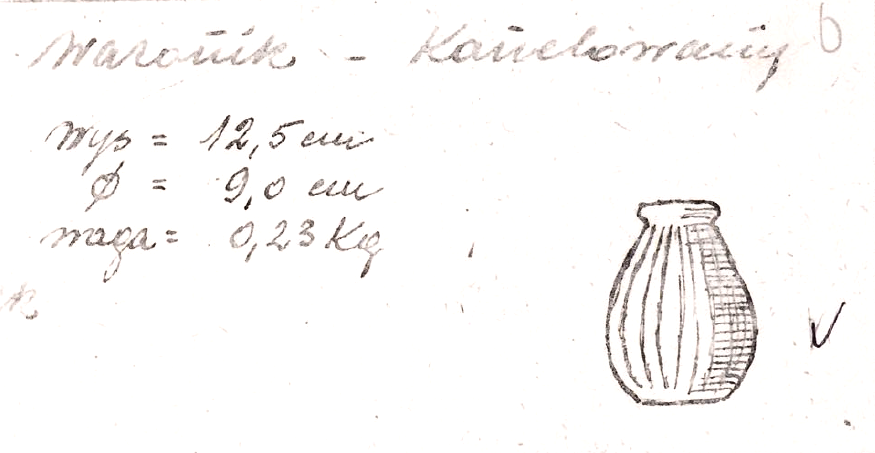 Wazonik - Kanelowany 6
wys = 12,5 cm
ø = 9,0 cm
waga = 0,23 Kg